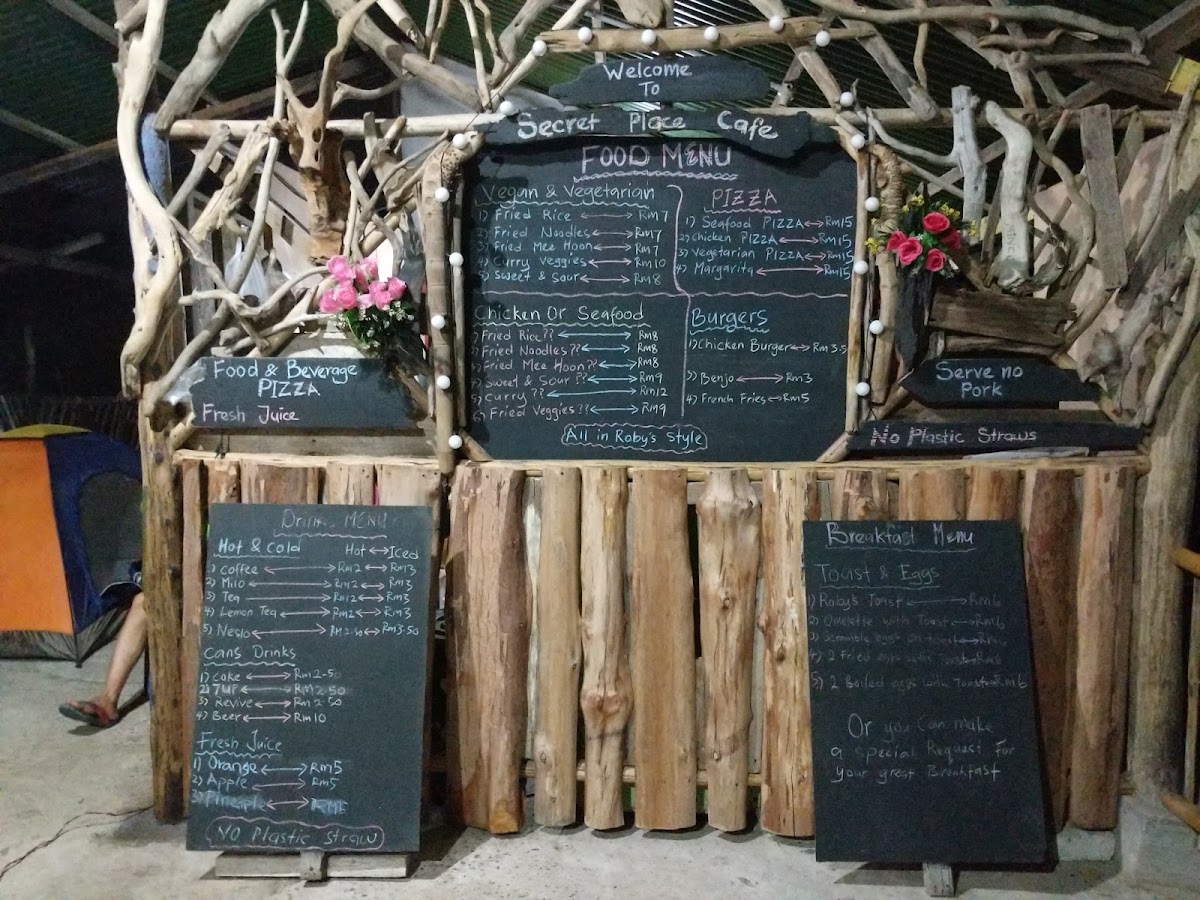 Welcome
To
Secret Place Cafe
FOOD MENU
Vegan & Vegetarian
1) Fried Rice ↔ Rm7
2) Fried Noodles ↔ Rm7
3) Fried Mee Hoon ↔ Rm7
4) Curry Veggies ↔ Rm10
5) Sweet & Sour ↔ Rm8
PIZZA
1) Seafood PIZZA ↔ Rm15
2) Chicken PIZZA ↔ Rm15
3) Vegetarian PIZZA ↔ Rm15
4) Margarita ↔ Rm15
Chicken Or Seafood
1) Fried Rice ?? ↔ Rm8
2) Fried Noodles ?? ↔ Rm8
3) Fried Mee Hoon ?? ↔ Rm8
4) Sweet & Sour ?? ↔ Rm9
5) Curry ?? ↔ Rm12
6) Fried Veggies ?? ↔ Rm9
Burgers
1) Chicken Burger ↔ Rm 3.5
3) Benjo ↔ Rm3
4) French Fries ↔ Rm5
All in Roby's Style
Food & Beverage
PIZZA
Fresh Juice
Serve no
Pork
No Plastic Straws
Drinks MENU
Hot & Cold Hot ↔ Iced
1) Coffee ↔ Rm2 ↔ Rm3
2) Milo ↔ Rm2 ↔ Rm3
3) Tea ↔ Rm2 ↔ Rm3
4) Lemon Tea ↔ Rm2 ↔ Rm3
5) Neslo ↔ Rm2-50 ↔ Rm3-50
Cans Drinks
1) Coke ↔ Rm2-50
2) 7UP ↔ Rm2-50
3) Revive ↔ Rm2-50
4) Beer ↔ Rm10
Fresh Juice
1) Orange ↔ Rm5
2) Apple ↔ Rm5
3) Pineapple ↔
NO Plastic Straw
Breakfast Menu
Toast & Eggs
1) Roby's Toast ↔ Rm6
2) Omelette with Toast ↔ Rm6
3) Scramble eggs on toast ↔
4) 2 Fried eggs with Toast ↔ Rm6
5) 2 Boiled eggs with Toast ↔ Rm6
Or you Can make
a special Request For
your great Breakfast